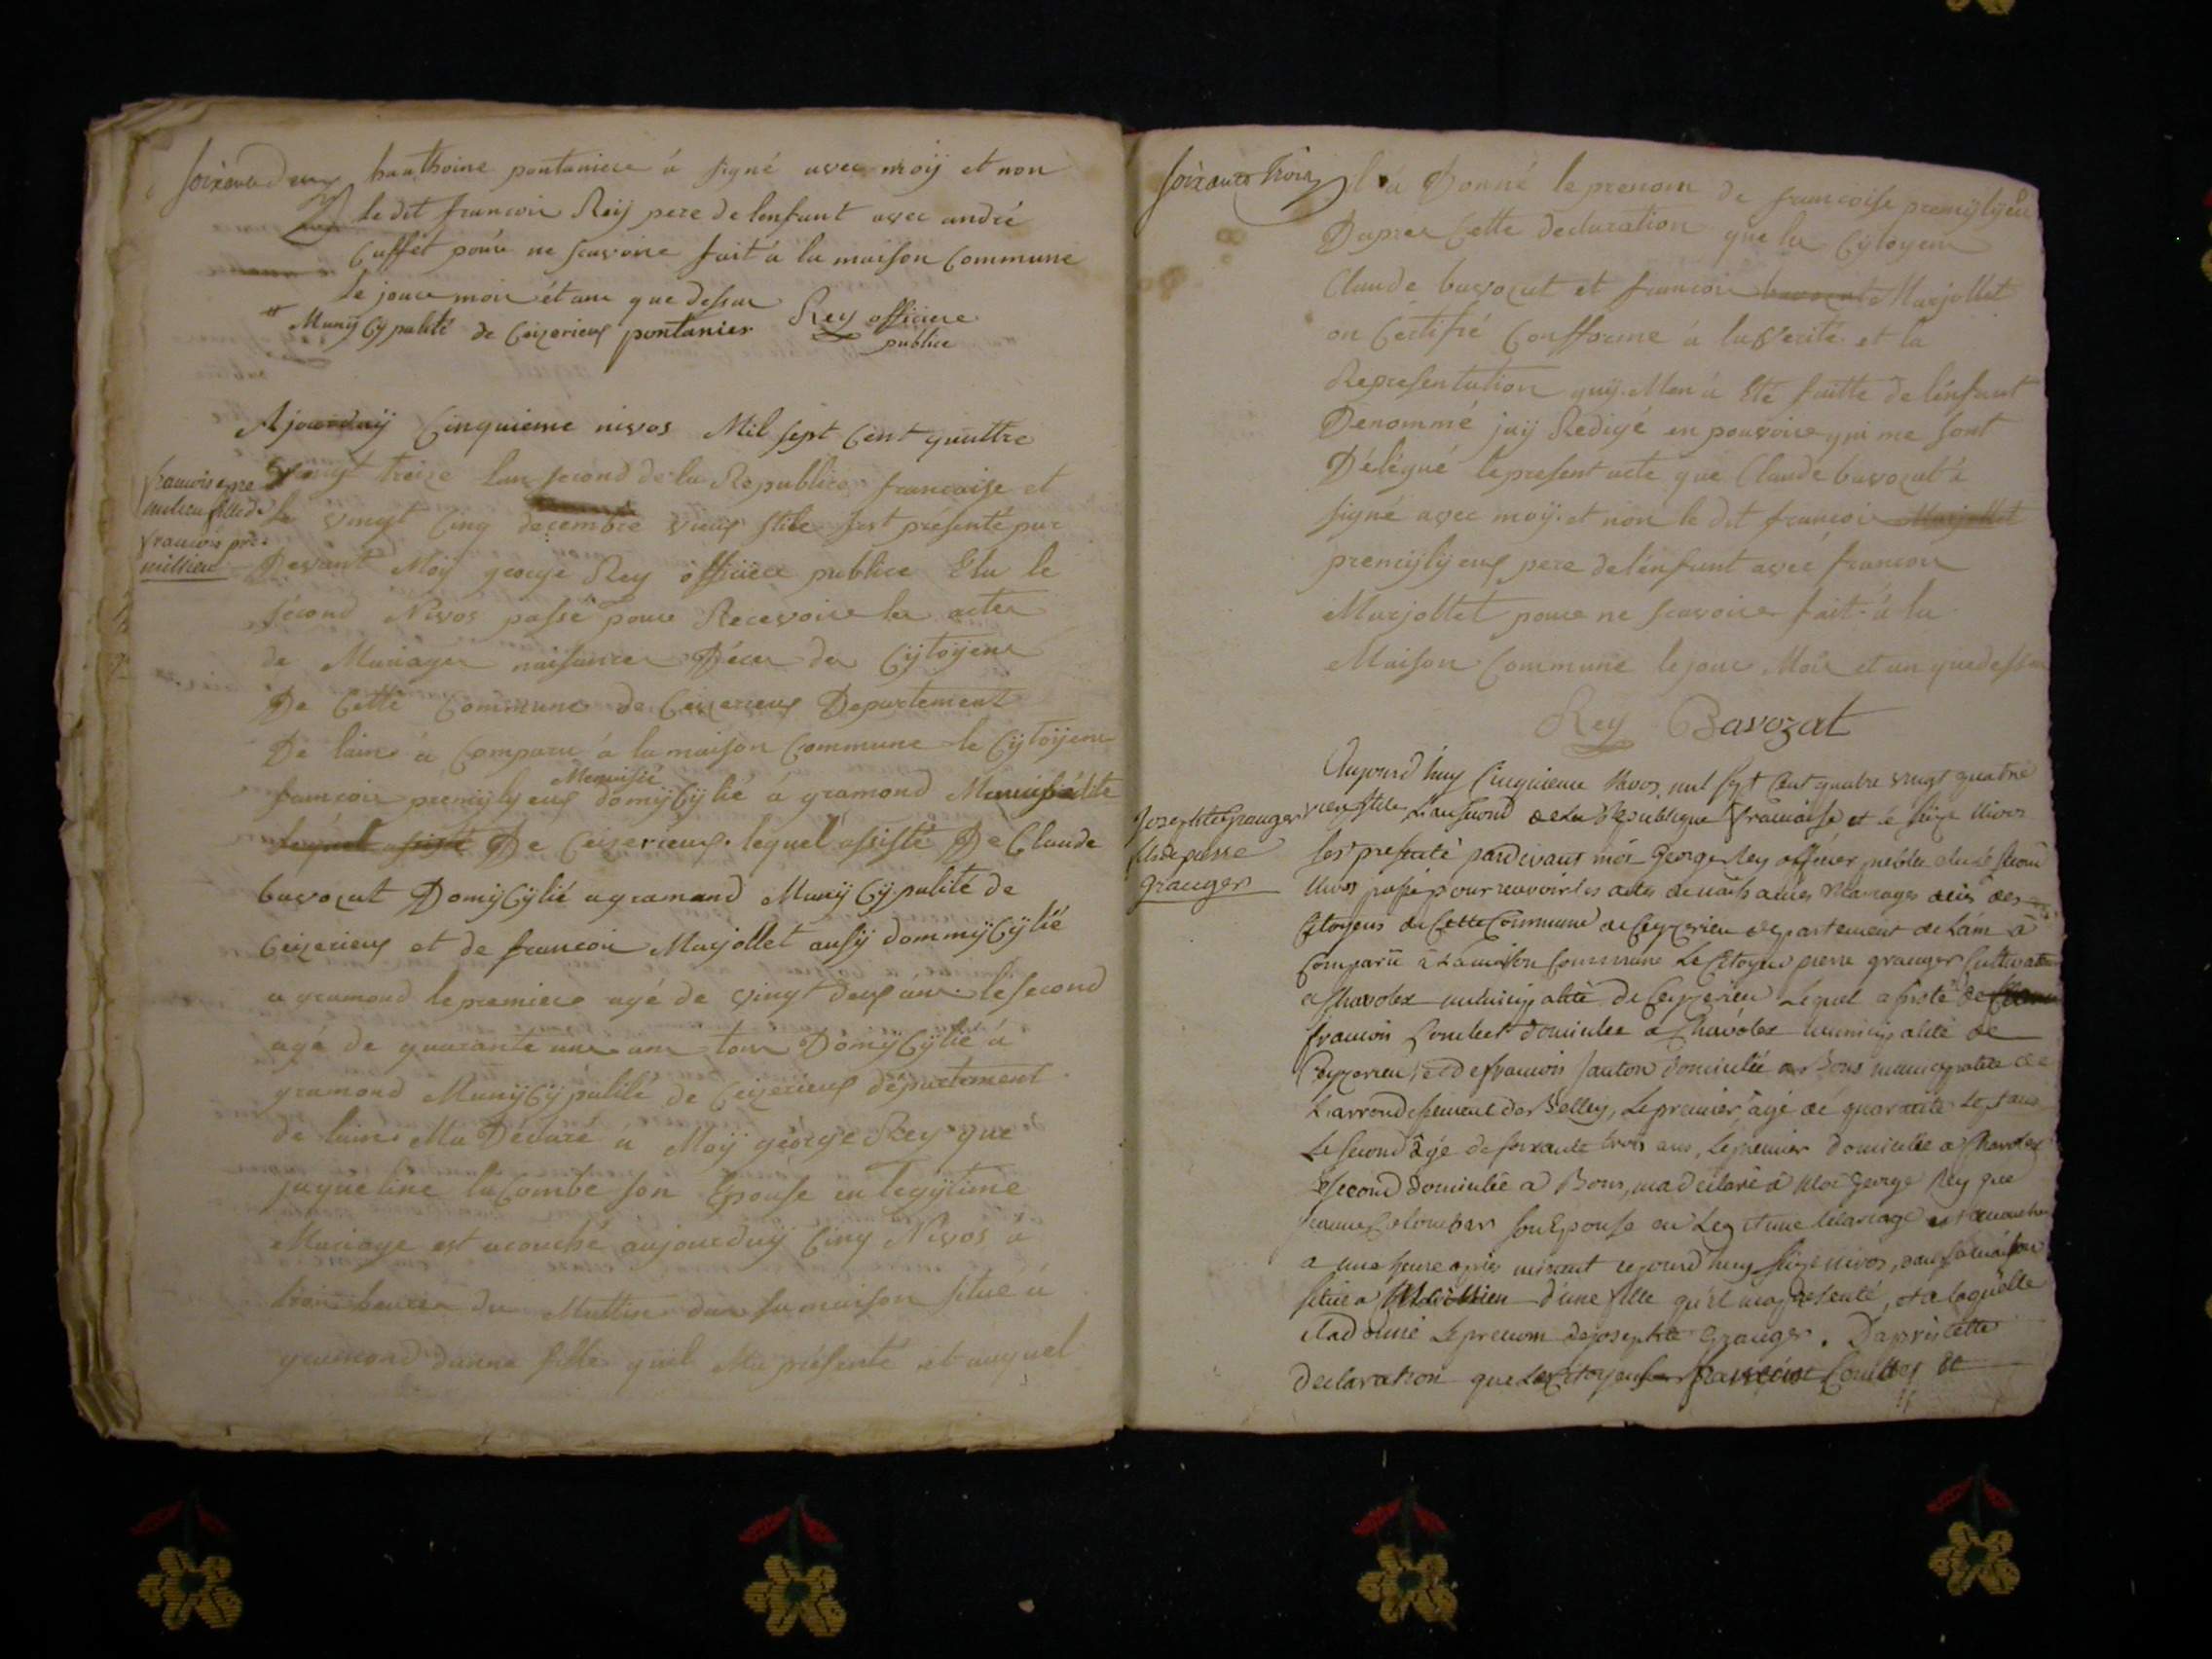 soixante deux
hanthoine pontaniere á signé avec moÿ et non
le dit francois Reÿ pere de lenfant avec andré
Cuffet pour ne scavoire fait á la maison Commune
le jour mois et ans que dessus
Munÿ Cÿpalité de Ceizerieux pontanier Rey officiere
publice
Ajourduÿ Cinquieme nivos Mil sept Cent quattre
vingt treize lan second de la Republice francaise et
le vingt Cinq decembre vieux stile sest présenté par
francoise pre
millieu fille de
francois pre
millieu
Devant Moÿ george Rey officiere publice Elu le
second Nivos passé pour Recevoire les actes
de Mariages naissances Déces des Cÿtoÿens
De Cette Commune de Ceizerieux Departement
De lain á Comparu á la maison Commune le Cÿtoÿens
Menuisié
francois premÿlÿeux domÿCÿlié á gramond
lequel assisté De Ceizerieux lequel assisté De Claude
bavozat DomÿCÿlié a gramond MunÿCÿpalité de
Ceizerieux et de francois Marjollet aussÿ dommÿCÿlié
a gramond le premiere agé de vingt deux ans le second
agé de quarante ans tous DomÿCÿlié á
gramond MunÿCÿpalité de Ceizerieux département
de lain Ma Déclaré á Moÿ géorge Rey que
jaqueline laCombe son Epouse en legÿtime
Mariage est acouché aujourduÿ Cinq Nivos á
trois heures du Mattin dans sa maison situé á
gramond danne fille quil Ma présenté et auquel
soixante Trois
il á Donné le prenom de francoise premÿlÿeu
Dapres Cette declaration que les Cÿtoyens
Claude bavozat et francois bavozat Marjollet
on Certifié Confforme á la verité et la
Representation quÿ Men á Eté faitte de lénfant
Denommé jaÿ Redigé en pouvoire qui me sont
Délégué le present acte que Claude bavozat á
signé avec moÿ et non le dit francois Marjollet
premÿlÿeux pere de lénfant avec francois
Marjollet pour ne scavoire fait á la
Maison Commune le jour Mois et an que dessus
Rey Bavozat
Aujourd'huy Cinquieme Nivos mil sept Cent quatre vingt quatre
Josephte Granger
fille de pierre
Granger
vieux stile, L'an second de La Republique francaise et le seize Nivos
s'est presenté pardevant moi George Rey officier public elu le second
Nivos passé pour recevoir les actes de naissances Mariages décès des
Citoyens de Cette Commune de Ceyzerieu departement de L'ain à
Comparu à La maison Commune Le Citoyen pierre granger Cultivateur
a Chavolex municipalité de Ceyzerieu Lequel assisté de
francois domicilée a Chavolex municipalité de
Ceyzerieu, et de francois domicilée a Bons municipalité de
L'arrondissement de Belley, Le premier âgé de quarante sept ans
Le second âgé de soixante trois ans, Le premier domicilée a Chavolex
Le second domicilée a Bons, ma déclaré à Moi George Rey que
son Epouse en Legitime Mariage est accouchée
a une heure après minuit cejourd'huy seize nivos, dans sa maison
située a d'une fille qu'il m'a presenté, et a laquelle
il a donné Le prenom de josephte Granger. D'après Cette
declaration que Les Citoyens francois et